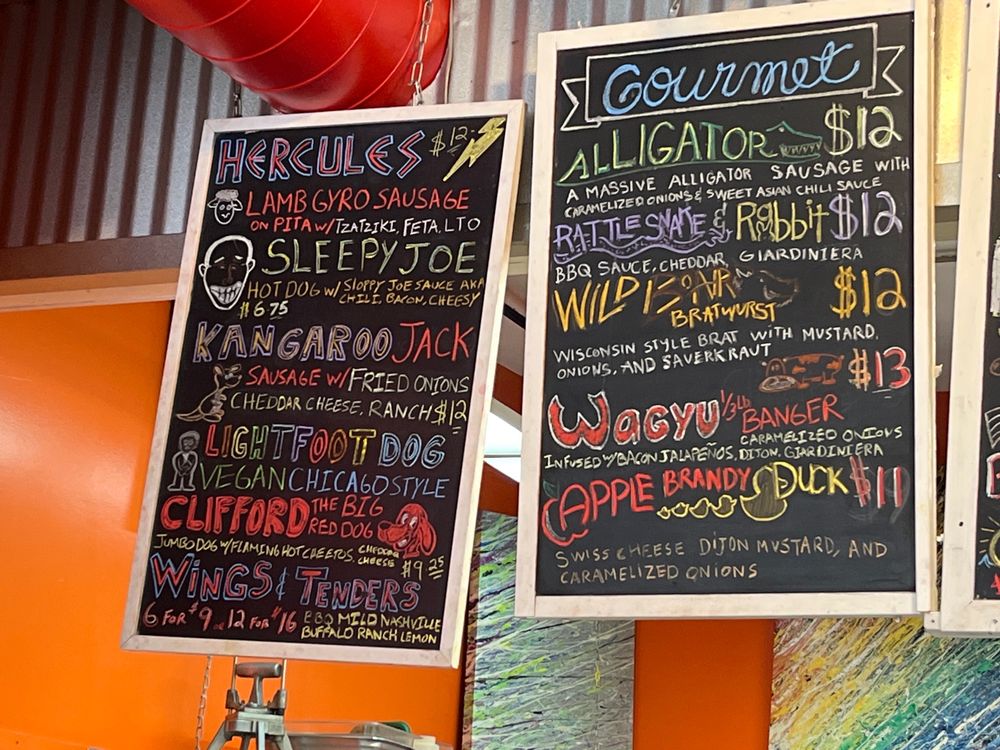 HERCULES $12.
LAMB GYRO SAUSAGE
ON PITA W/ TZATZIKI, FETA, LTO
SLEEPY JOE
HOT DOG W/ SLOPPY JOE SAUCE AKA
CHILI, BACON, CHEESY
$6.75
KANGAROO JACK
SAUSAGE W/ FRIED ONIONS
CHEDDAR CHEESE, RANCH $12
LIGHTFOOT DOG
VEGAN CHICAGO STYLE
CLIFFORD THE BIG
RED DOG
JUMBO DOG W/ FLAMING HOT CHEETOS, CHEDDAR
CHEESE $9.25
WINGS & TENDERS
6 FOR $9 or 12 FOR $16 BBQ MILD NASHVILLE
BUFFALO RANCH LEMON
Gourmet
ALLIGATOR $12
A MASSIVE ALLIGATOR SAUSAGE WITH
CARAMELIZED ONIONS & SWEET ASIAN CHILI SAUCE
RATTLESNAKE & Rabbit $12
BBQ SAUCE, CHEDDAR, GIARDINIERA
WILD BOAR $12
BRATWURST
WISCONSIN STYLE BRAT WITH MUSTARD,
ONIONS, AND SAUERKRAUT
$13
WAGYU 1/3 lb BANGER
INFUSED W/ BACON JALAPEÑOS, CARAMELIZED ONIONS
DIJON, GIARDINIERA
APPLE BRANDY DUCK $11
SWISS CHEESE DIJON MUSTARD, AND
CARAMELIZED ONIONS